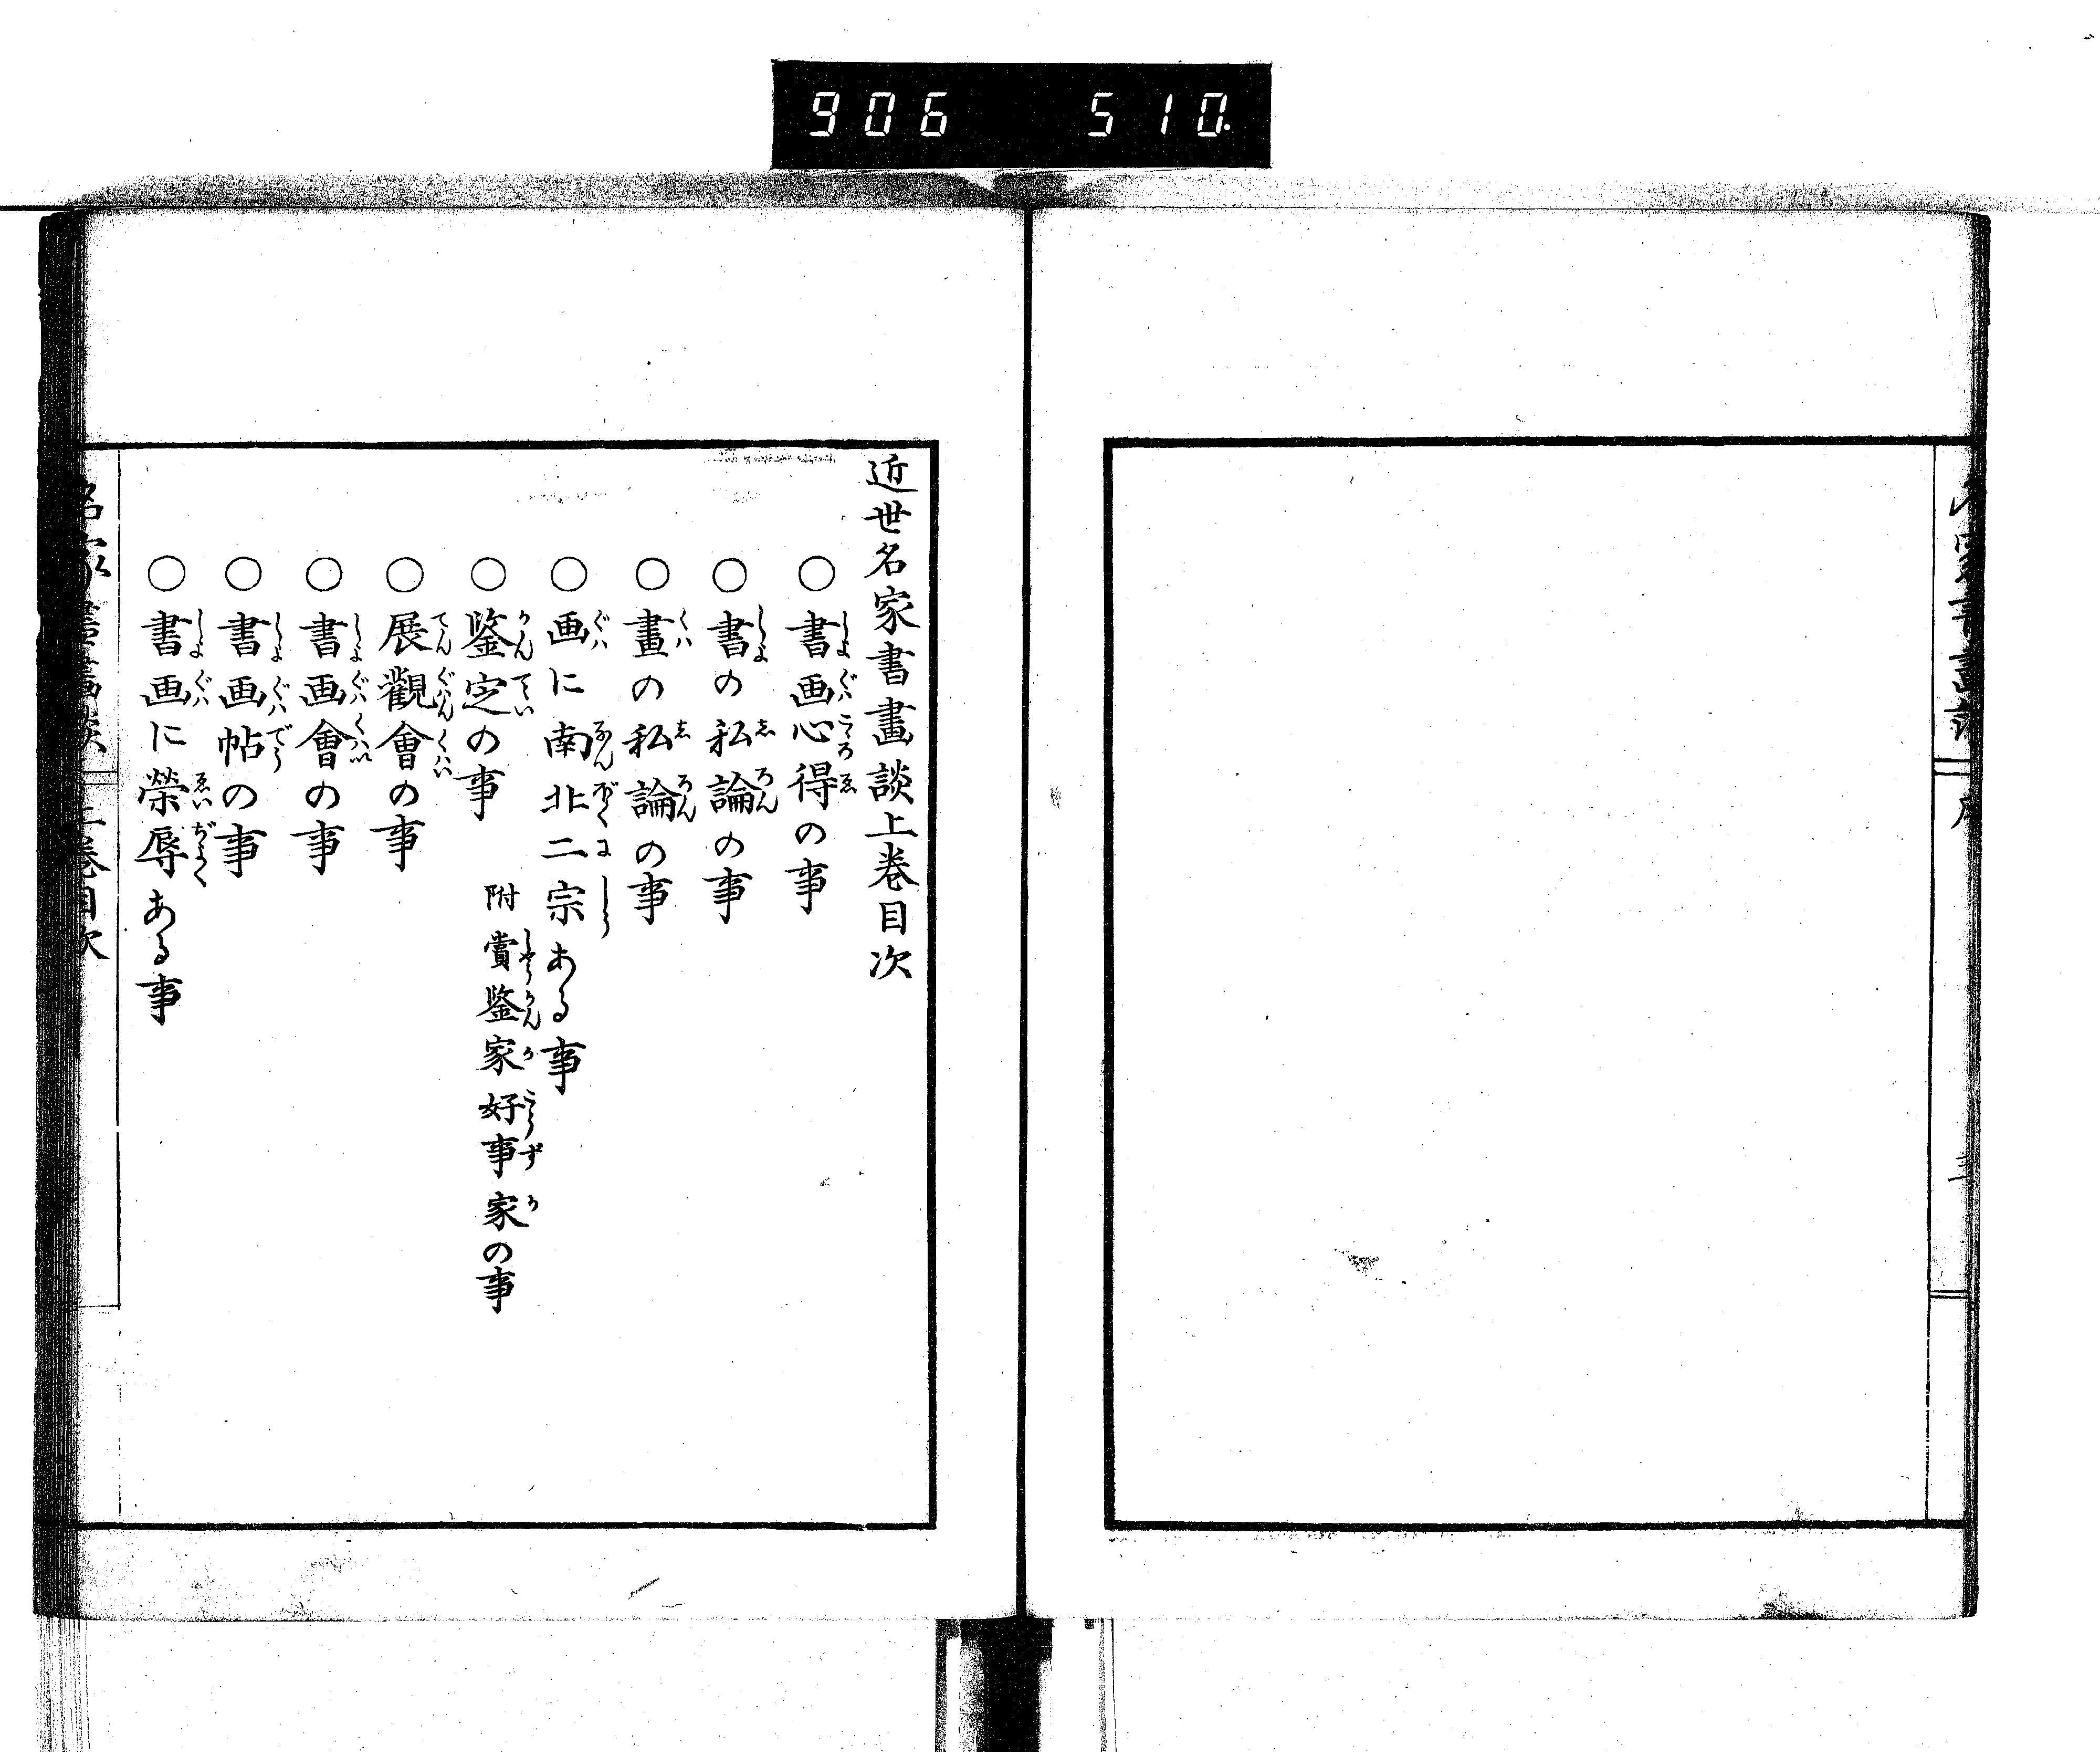 906 510
近世名家書畫談上巻目次
○書画心得の事
○書の私論の事
○畫の私論の事
○画に南北二宗ある事
○鑒定の事 附賞鑒家好事家の事
○展觀會の事
○書画會の事
○書画帖の事
○書画に榮辱ある事